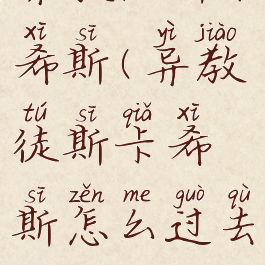 xī sī yì jiào
希斯(异教
tú sī qiǎ xī
徒斯卡希
sī zěn me guò qù
斯怎么过去